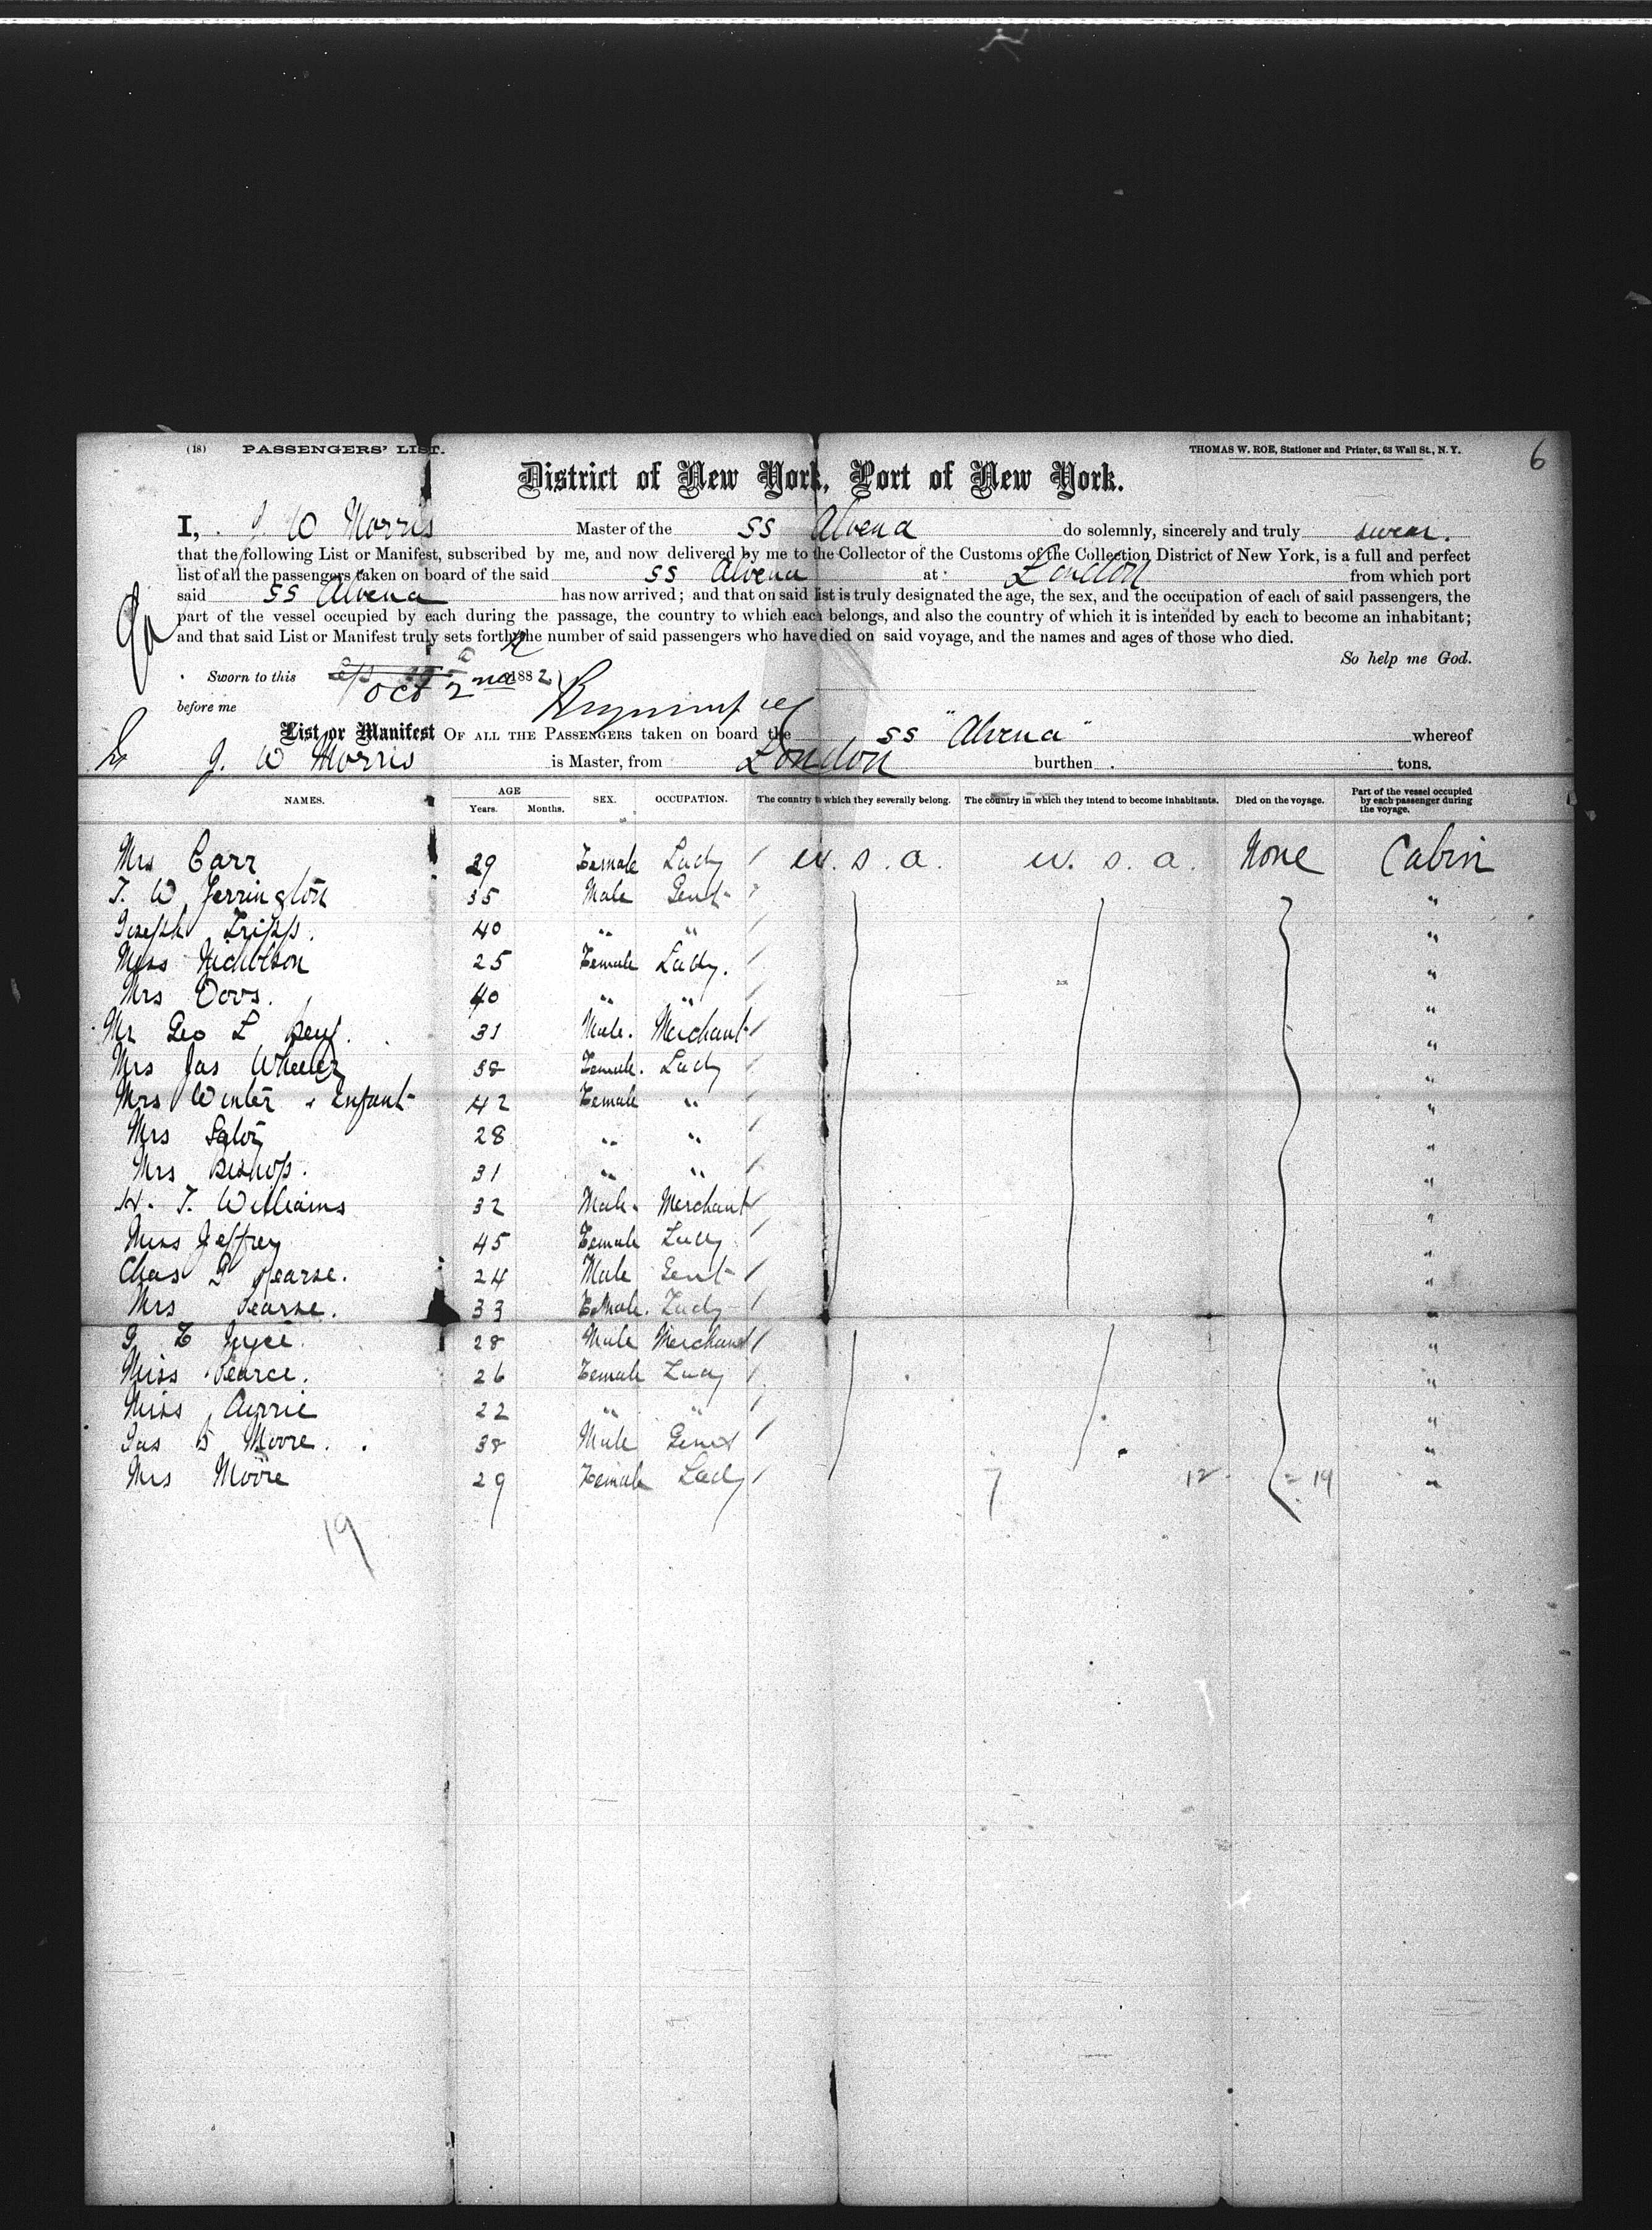 (18) PASSENGERS' LIST. THOMAS W. ROE, Stationer and Printer, 63 Wall St., N.Y. 6
District of New York, Port of New York.
I, J W Morris Master of the SS Alvena do solemnly, sincerely and truly swear.
that the following List or Manifest, subscribed by me, and now delivered by me to the Collector of the Customs of the Collection District of New York, is a full and perfect
list of all the passengers taken on board of the said SS Alvena at London from which port
said SS Alvena has now arrived; and that on said list is truly designated the age, the sex, and the occupation of each of said passengers, the
part of the vessel occupied by each during the passage, the country to which each belongs, and also the country of which it is intended by each to become an inhabitant;
and that said List or Manifest truly sets forth the number of said passengers who have died on said voyage, and the names and ages of those who died.
So help me God.
Sworn to this Oct 2nd 1882
before me
List or Manifest OF ALL THE PASSENGERS taken on board the SS "Alvena" whereof
J. W Morris is Master, from London burthen tons.
NAMES. AGE Years. Months. SEX. OCCUPATION. The country to which they severally belong. The country in which they intend to become inhabitants. Died on the voyage. Part of the vessel occupied by each passenger during the voyage.
Mrs Carr 29 Female Lady / U. S. A. U. S. A. None Cabin
T. W. Jerrington 35 Male Gent "
Joseph Tripp. 40 " " / "
Miss Nicholson 25 Female Lady. / "
Mrs 40 " " / "
Mr Geo L 31 Male. Merchant / "
Mrs Jas Wheeler 38 Female. Lady / "
Mrs Winter & Infant 42 Female " / "
Mrs 28 " " / "
Mrs Bishop. 31 " " / "
H. T. Williams 32 Male. Merchant / "
Miss Jeffrey 45 Female Lady / "
Chas G Pearse. 24 Male Gent / "
Mrs Pearse. 33 Female. Lady / "
Joyce. 28 Male Merchant / "
Miss Pearce. 26 Female Lady / "
Miss 22 " " / "
Jas B Moore. 38 Male Gent / "
Mrs Moore 29 Female Lady / 7 12 = 19 "
19